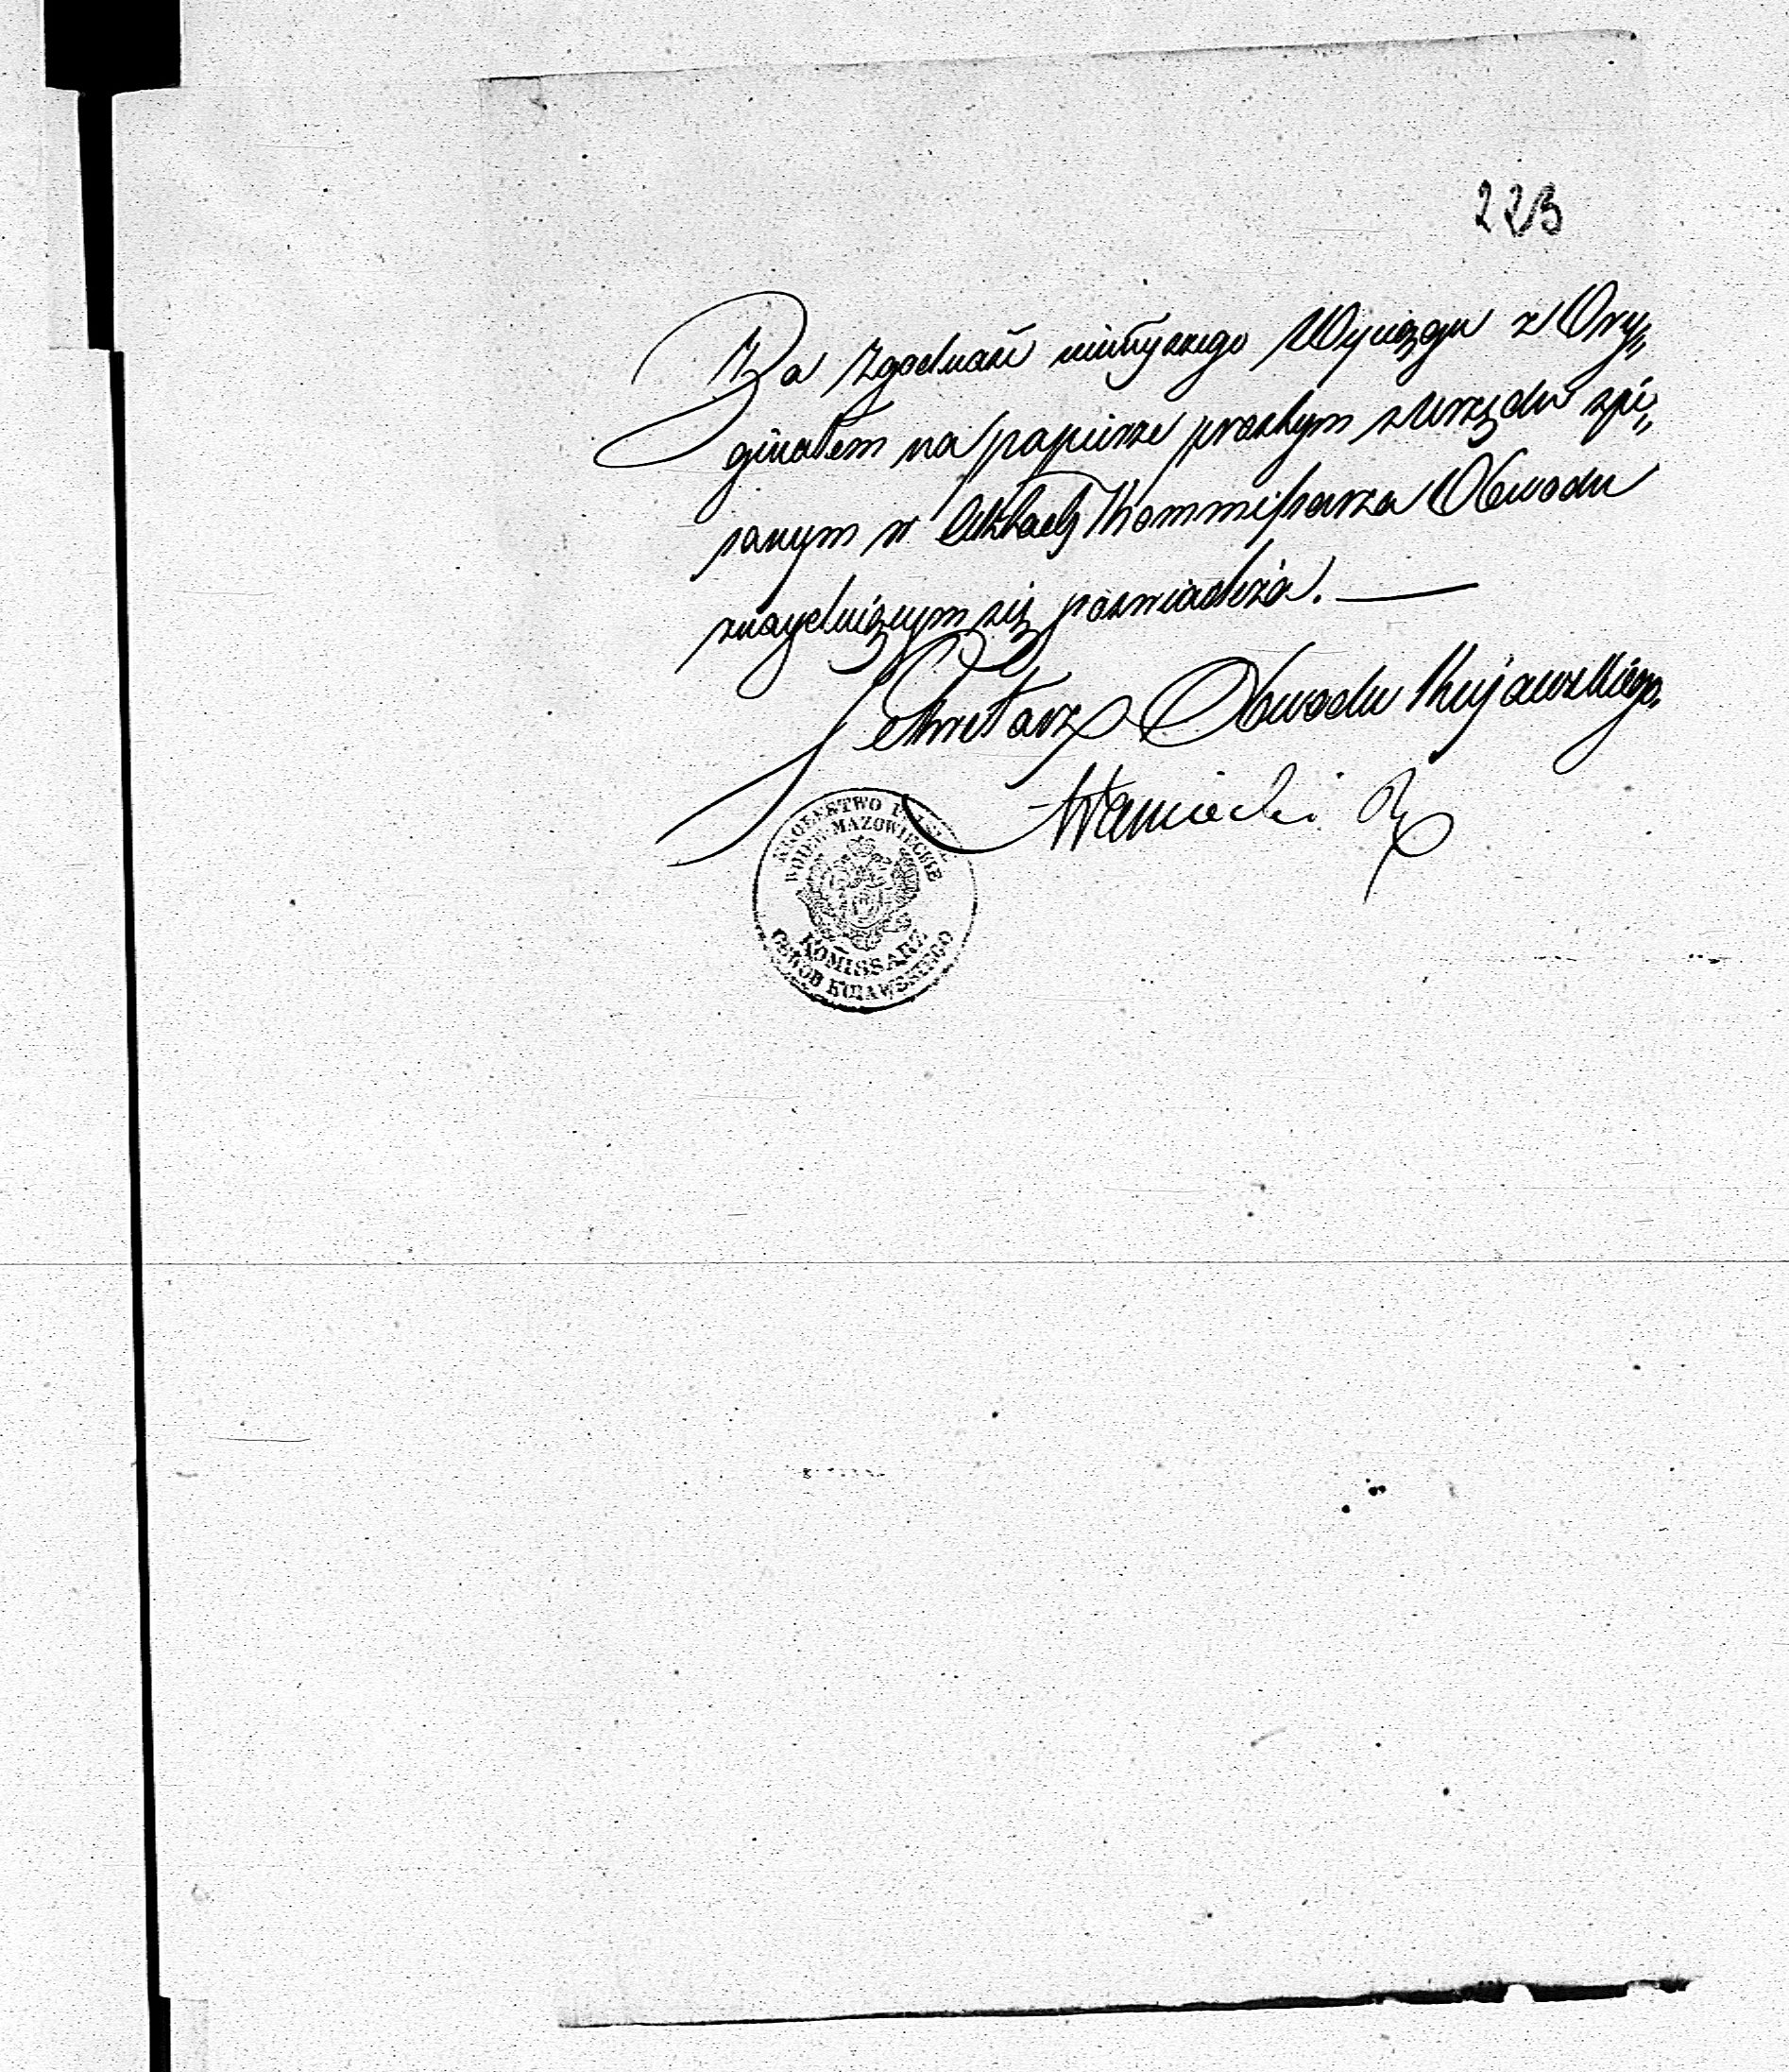 223
Za zgodność ninieyszego Wyciągu z Ory„
ginałem na papierze prostym z Urzędu spi„
sanym w Aktach Kommissarza Obwodu
znayduiącym się poswiadcza.—
Sekretarz Obwodu Kujawskiego.
KROLESTWO POLSKIE
WOIEW. MAZOWIECKIE
KOMISSARZ
OBWOD KUIAWSKIEGO